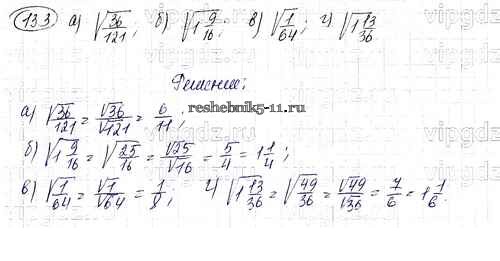 13.3 а) √36/121; б) √1 9/16; в) √1/64; г) √1 13/36
vipgdz.ru
Решение:
reshebnik5-11.ru
а) √36/121 = √36/√121 = 6/11;
б) √1 9/16 = √25/16 = √25/√16 = 5/4 = 1 1/4;
в) √1/64 = √1/√64 = 1/8; г) √1 13/36 = √49/36 = √49/√36 = 7/6 = 1 1/6.